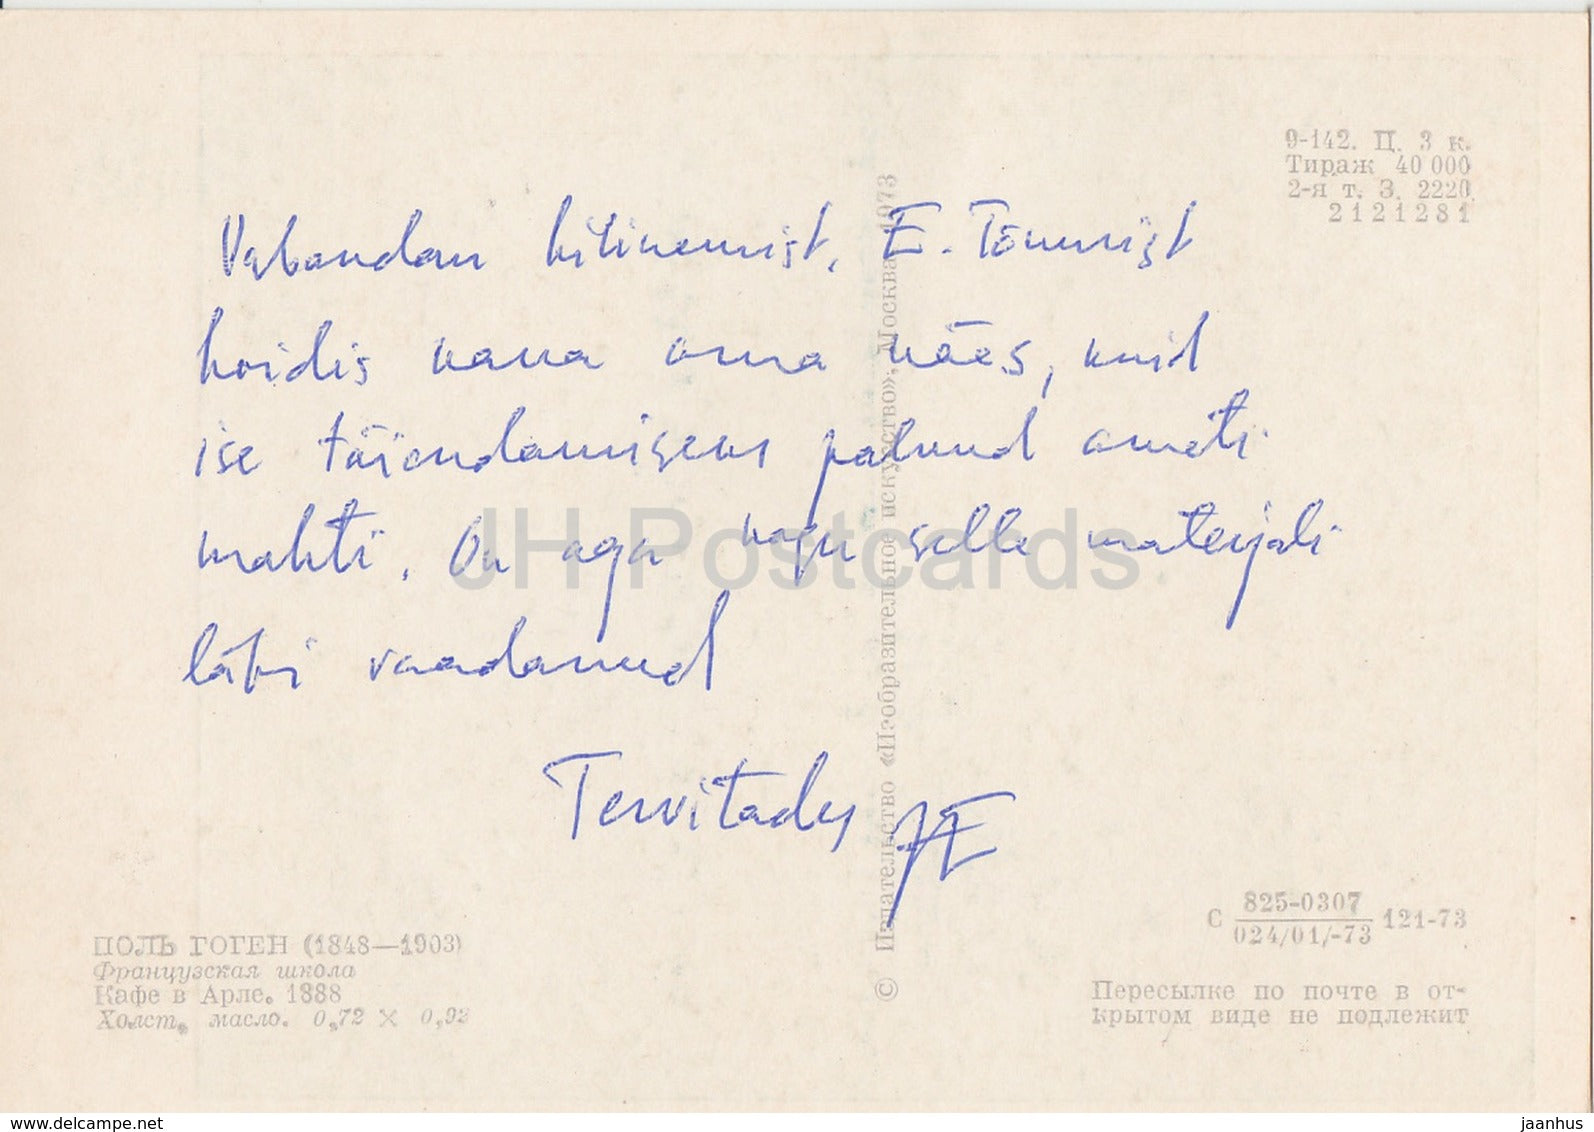 9-142. Ц. 3 к.
Тираж 40 000
2-я т. З. 2220
2121281
Vabandan hilinemist. E. Tõnurist
hoidis kaua oma käes, kuid
ise täiendamiseks palunud ometi
mahti. On aga kogu selle materjali
läbi vaadanud
Tervitades
JH Postcards
© Издательство «Изобразительное искусство». Москва. 1973
ПОЛЬ ГОГЕН (1848—1903)
Французская школа
Кафе в Арле. 1888
Холст, масло. 0,72 × 0,92
С 825-0307 121-73
024/01/-73
Пересылке по почте в от-
крытом виде не подлежит
www.delcampe.net
jaanhus